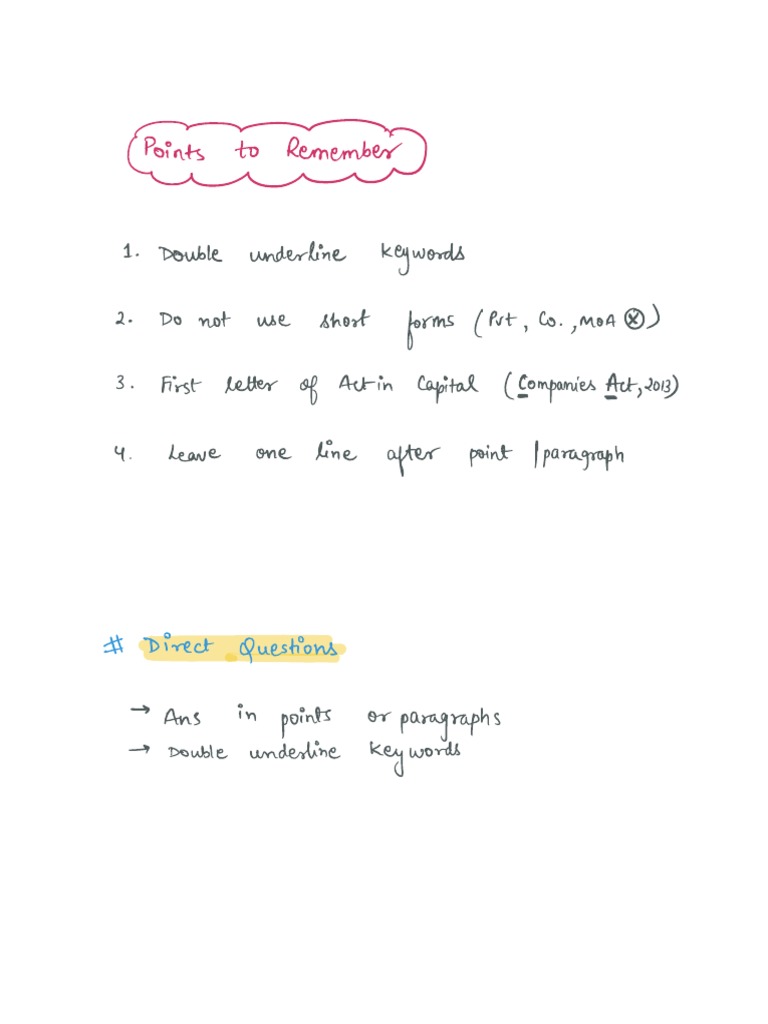 Points to Remember
1. Double underline keywords
2. Do not use short forms (Pvt, Co., MOA ⊗)
3. First letter of Act in Capital (Companies Act, 2013)
4. Leave one line after point / paragraph
# Direct Questions
→ Ans in points or paragraphs
→ Double underline keywords